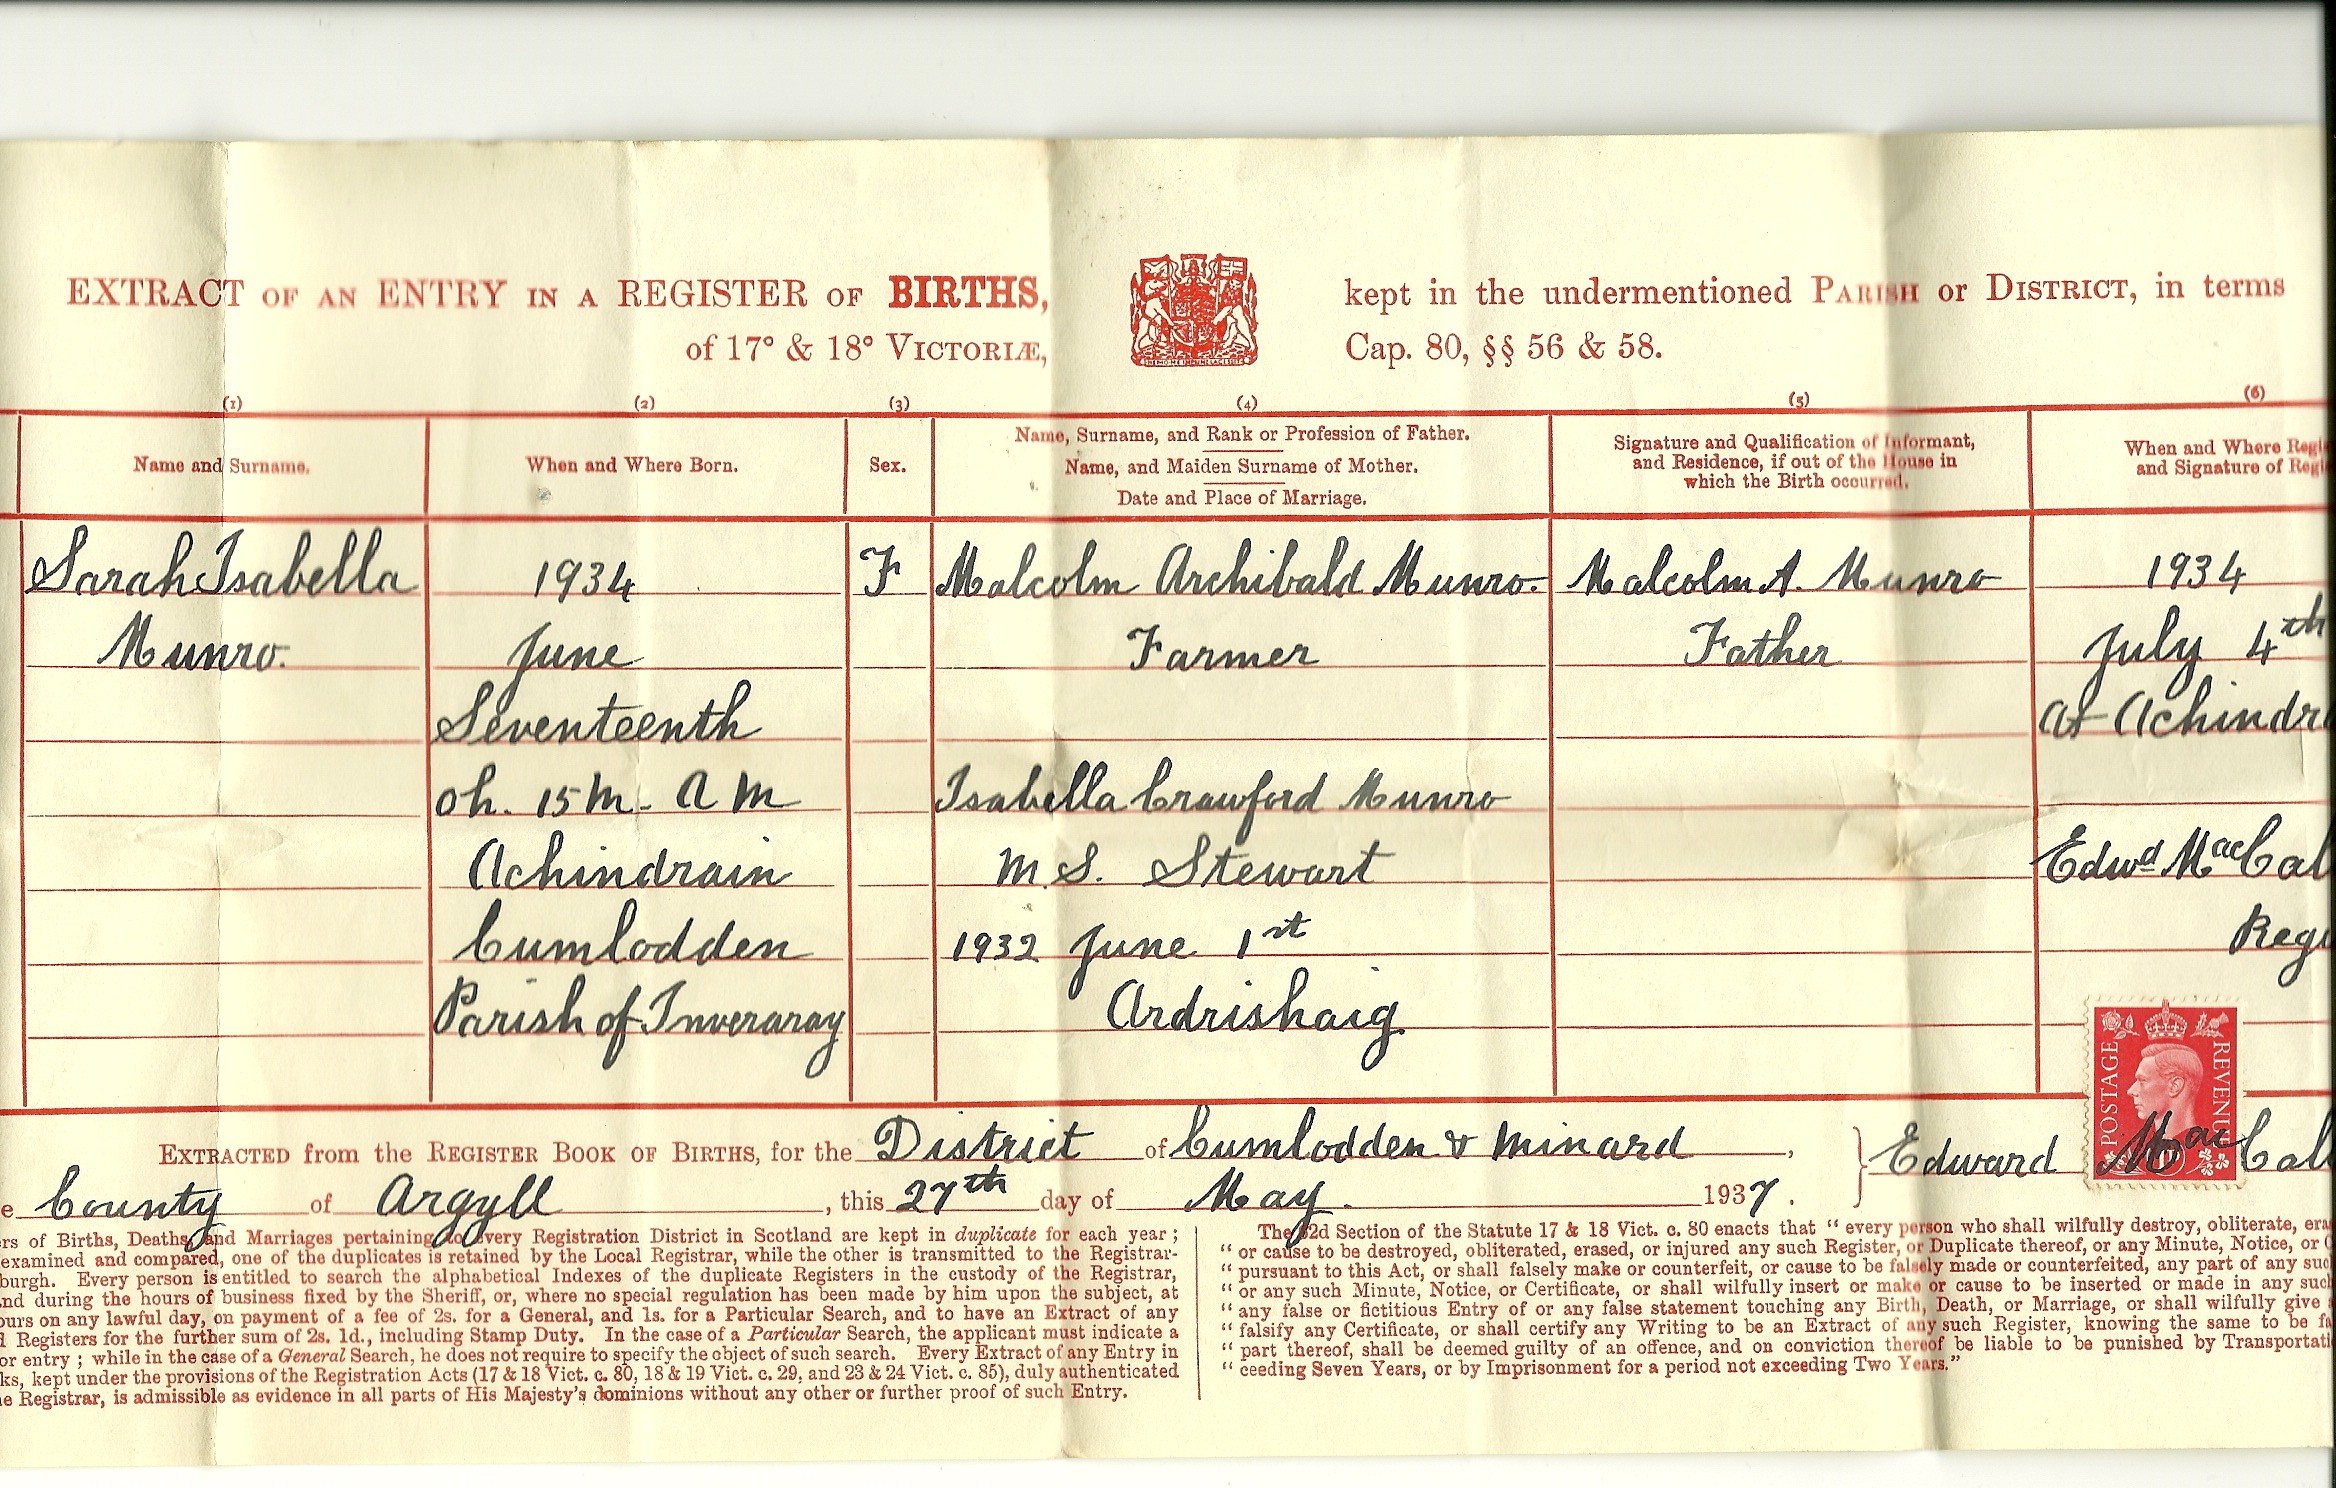 EXTRACT OF AN ENTRY IN A REGISTER OF BIRTHS, kept in the undermentioned PARISH or DISTRICT, in terms
of 17° & 18° VICTORIÆ, Cap. 80, §§ 56 & 58.
(1) (2) (3) (4) (5) (6)
Name and Surname.
When and Where Born.
Sex.
Name, Surname, and Rank or Profession of Father.
Name, and Maiden Surname of Mother.
Date and Place of Marriage.
Signature and Qualification of Informant,
and Residence, if out of the House in
which the Birth occurred.
When and Where Regi
and Signature of Regi
Sarah Isabella
Munro.
1934
June
Seventeenth
0h. 15m. A M
Achindrain
Cumlodden
Parish of Inveraray
F
Malcolm Archibald Munro.
Farmer
Isabella Crawford Munro
M.S. Stewart
1932 June 1st
Ardrishaig
Malcolm A. Munro
Father
1934
July 4th
At Achindra
Edwd MacCal
Regi
POSTAGE REVENUE
EXTRACTED from the REGISTER BOOK OF BIRTHS, for the District of Cumlodden & Minard,
Edward MacCal
e County of Argyll, this 27th day of May. 1937.
rs of Births, Deaths, and Marriages pertaining to every Registration District in Scotland are kept in duplicate for each year;
examined and compared, one of the duplicates is retained by the Local Registrar, while the other is transmitted to the Registrar-
burgh. Every person is entitled to search the alphabetical Indexes of the duplicate Registers in the custody of the Registrar,
nd during the hours of business fixed by the Sheriff, or, where no special regulation has been made by him upon the subject, at
ours on any lawful day, on payment of a fee of 2s. for a General, and 1s. for a Particular Search, and to have an Extract of any
d Registers for the further sum of 2s. 1d., including Stamp Duty. In the case of a Particular Search, the applicant must indicate a
or entry; while in the case of a General Search, he does not require to specify the object of such search. Every Extract of any Entry in
ks, kept under the provisions of the Registration Acts (17 & 18 Vict. c. 80, 18 & 19 Vict. c. 29, and 23 & 24 Vict. c. 85), duly authenticated
e Registrar, is admissible as evidence in all parts of His Majesty's dominions without any other or further proof of such Entry.
The 62d Section of the Statute 17 & 18 Vict. c. 80 enacts that "every person who shall wilfully destroy, obliterate, era
"or cause to be destroyed, obliterated, erased, or injured any such Register, or Duplicate thereof, or any Minute, Notice, or C
"pursuant to this Act, or shall falsely make or counterfeit, or cause to be falsely made or counterfeited, any part of any suc
"or any such Minute, Notice, or Certificate, or shall wilfully insert or make or cause to be inserted or made in any such
"any false or fictitious Entry of or any false statement touching any Birth, Death, or Marriage, or shall wilfully give
"falsify any Certificate, or shall certify any Writing to be an Extract of any such Register, knowing the same to be fa
"part thereof, shall be deemed guilty of an offence, and on conviction thereof be liable to be punished by Transportati
"ceeding Seven Years, or by Imprisonment for a period not exceeding Two Years."